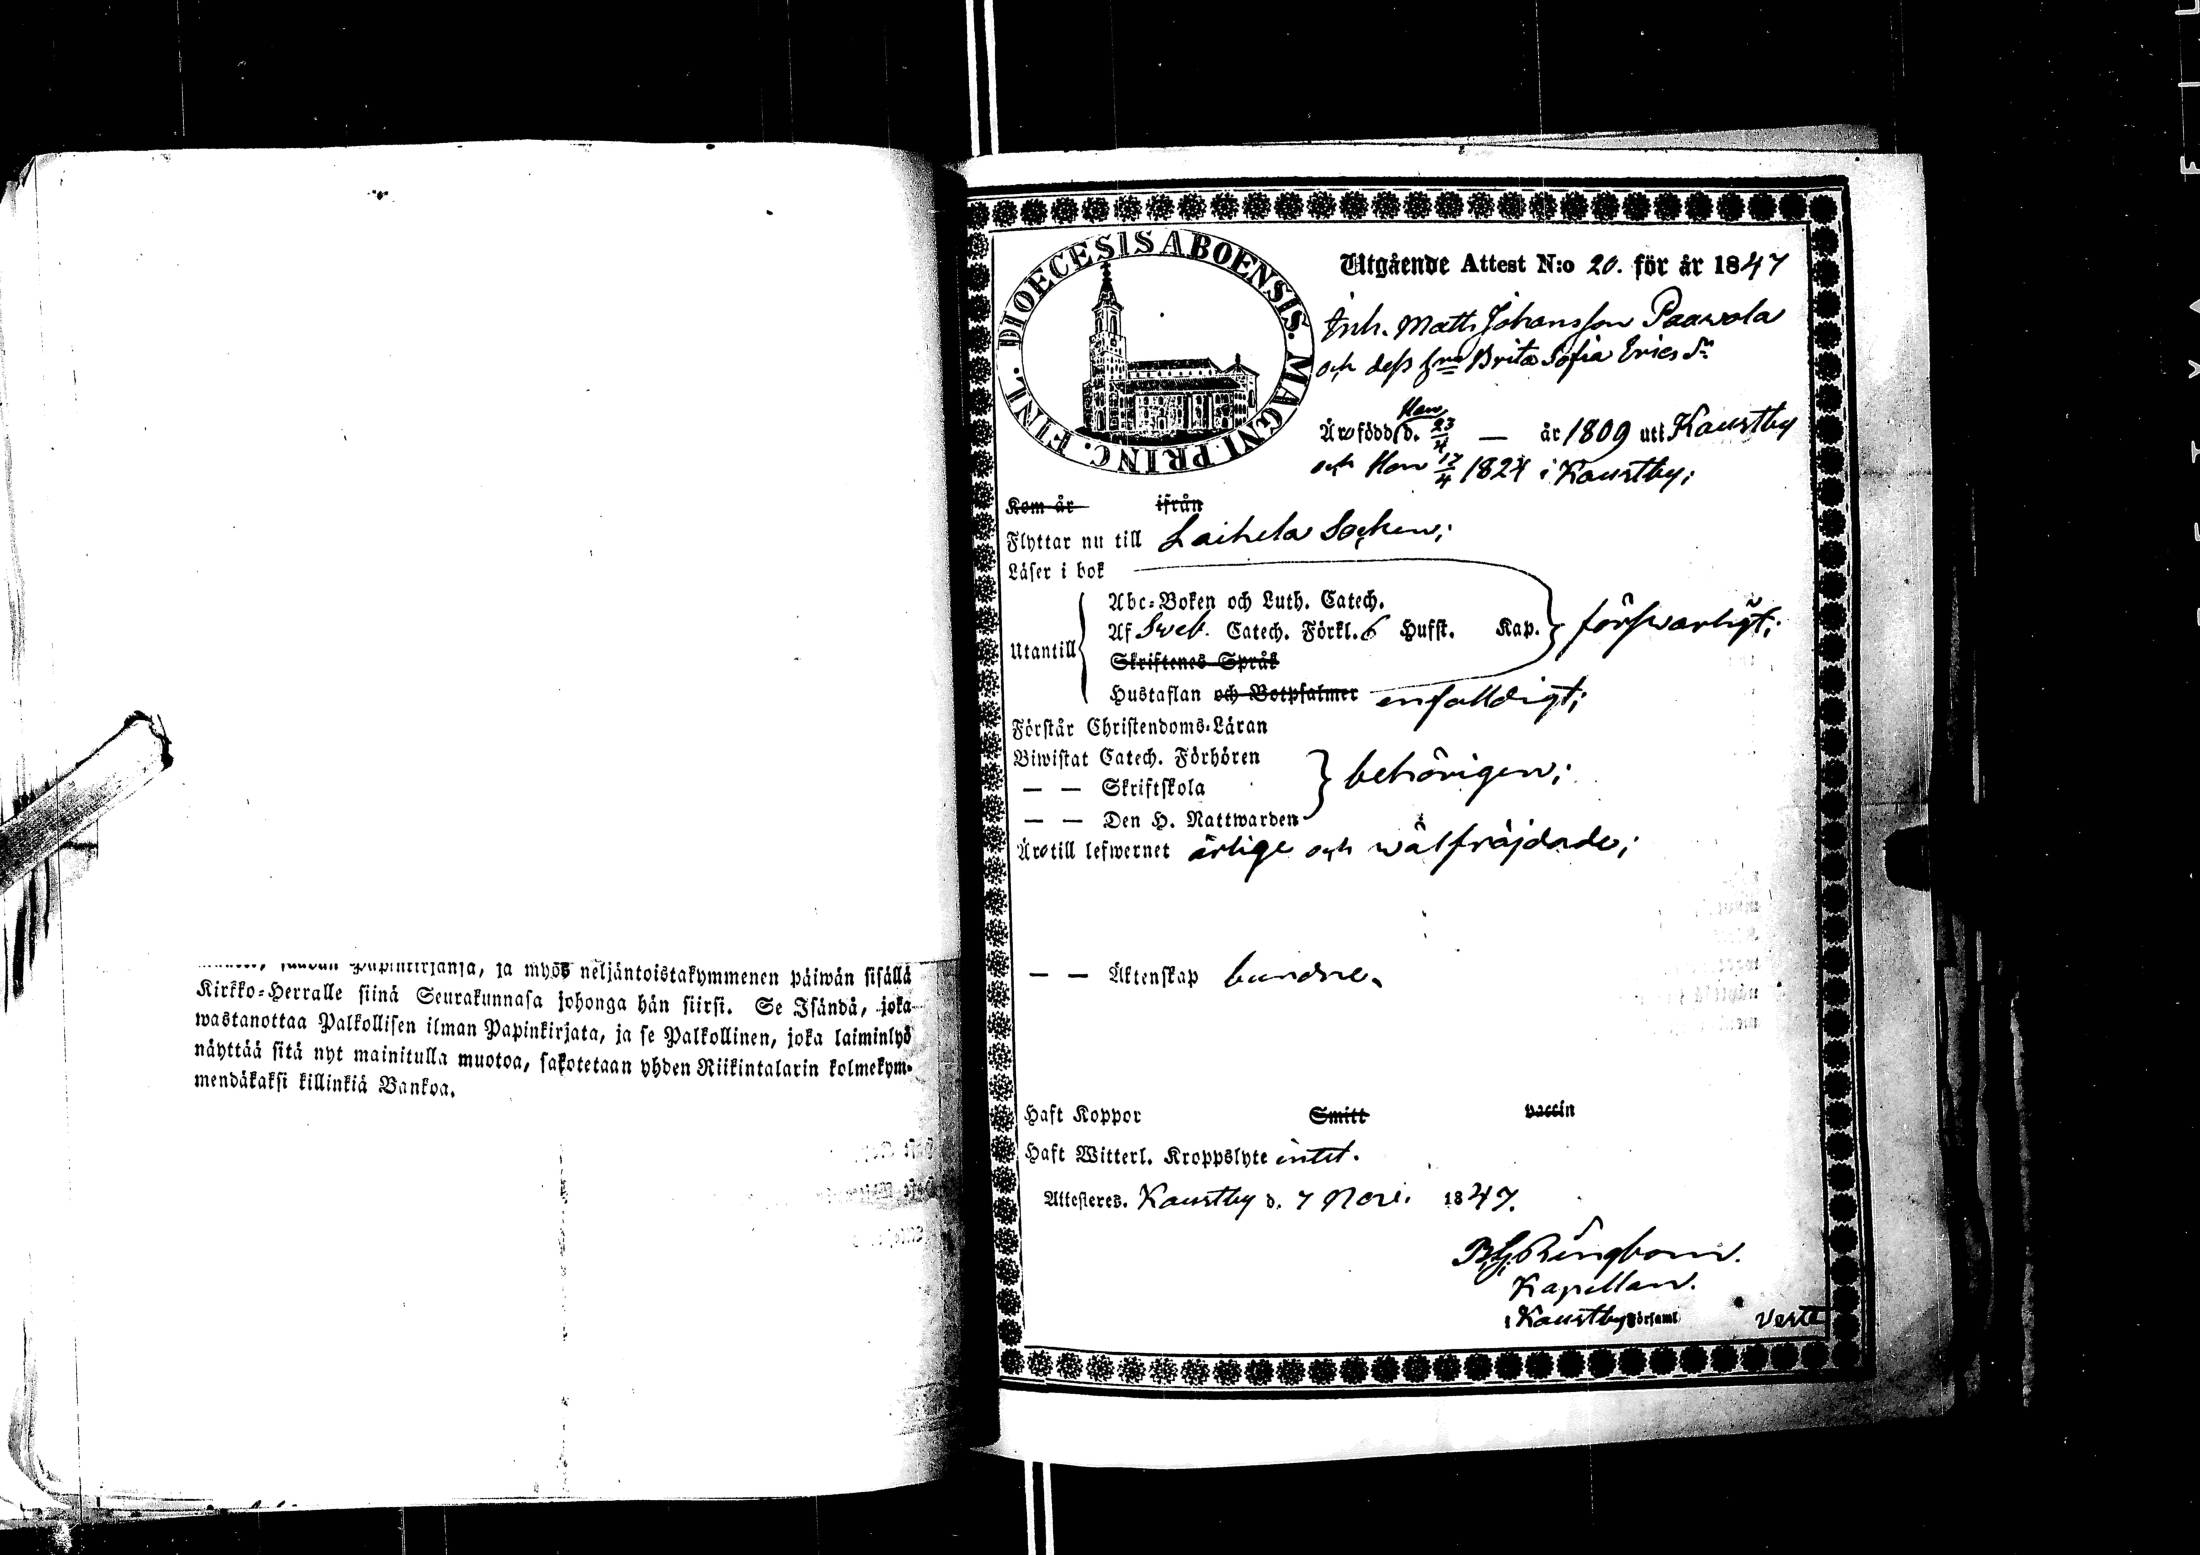 Papinkirjansa, ja myös neljäntoistakymmenen päiwän sisällä
Kirkko-Herralle siinä Seurakunnasa johonga hän siirsi. Se Isändä, joka
wastanottaa Palkollisen ilman Papinkirjata, ja se Palkollinen, joka laiminlyö
näyttää sitä nyt mainitulla muotoa, sakotetaan yhden Riikintalarin kolmekym-
mendäkaksi killinkiä Bankoa.
DIOECESIS ABOENSIS. MAGNI. PRINC. FINL.
Utgående Attest N:o 20. för år 1847
Inh. Matts Johansson Paavola
och dess Brita Sofia Erics Dr
Han
Äro född d. 23/4 — år 1809 uti Kaustby
och Hon 17/4 1824 i Kaustby;
Kom år ifrån
Flyttar nu till Laihela Socken;
Läser i bok
Abc-Boken och Luth. Catech.
Utantill Af Sveb. Catech. Förkl. 6 Hufst. Kap. försvarligt;
Skriftenes Språk
Hustaflan och Botpsalmer enfalldigt;
Förstår Christendoms-Läran
Biwistat Catech. Förhören
— — Skriftskola behörigen;
— — Den H. Nattwarden
Äro till lefwernet ärlige och wälfräjdade;
— — Äktenskap bundne.
Haft Koppor Smitt vaccin
Haft Witterl. Kroppslyte intet.
Attesteres. Kaustby d. 7 Nov. 1847.
B. G. Ringbom.
Kapellan.
i Kaustby Församl
Verte